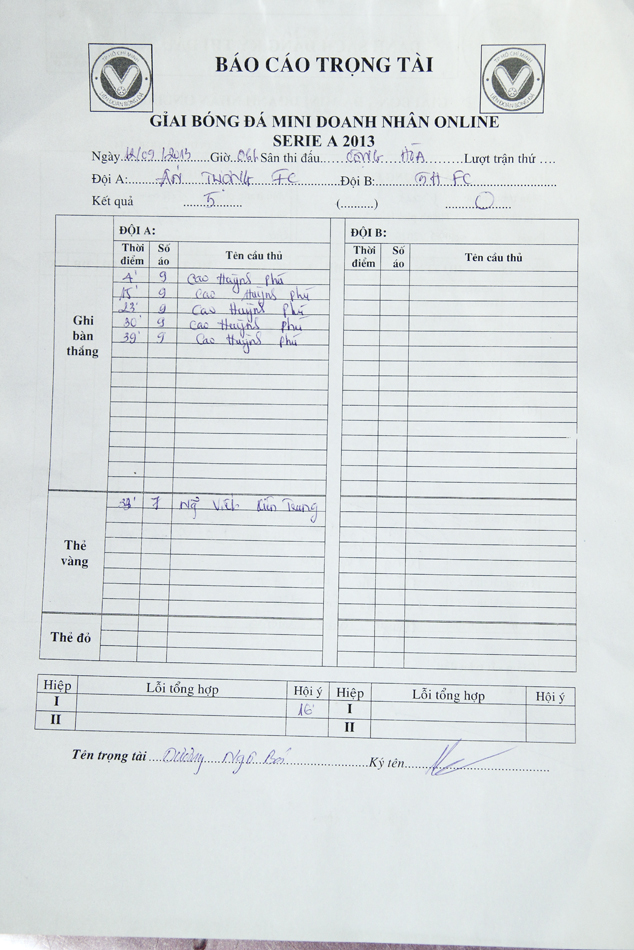 BÁO CÁO TRỌNG TÀI
GIẢI BÓNG ĐÁ MINI DOANH NHÂN ONLINE
SERIE A 2013
Ngày 12/09/2013 Giờ Sân thi đấu CỘNG HÒA Lượt trận thứ ....
Đội A: ẤN TƯỢNG FC Đội B: FC
Kết quả 5 (..........) 0
ĐỘI A: ĐỘI B:
Thời điểm Số áo Tên cầu thủ Thời điểm Số áo Tên cầu thủ
Ghi bàn thắng
4' 9 Cao Huỳnh Phú
15' 9 Cao Huỳnh Phú
23' 9 Cao Huỳnh Phú
30' 9 Cao Huỳnh Phú
39' 9 Cao Huỳnh Phú
Thẻ vàng
7 Ng Việt Kiên Trung
Thẻ đỏ
Hiệp Lỗi tổng hợp Hội ý Hiệp Lỗi tổng hợp Hội ý
I 16' I
II II
Tên trọng tài Dương Ngô Ký tên